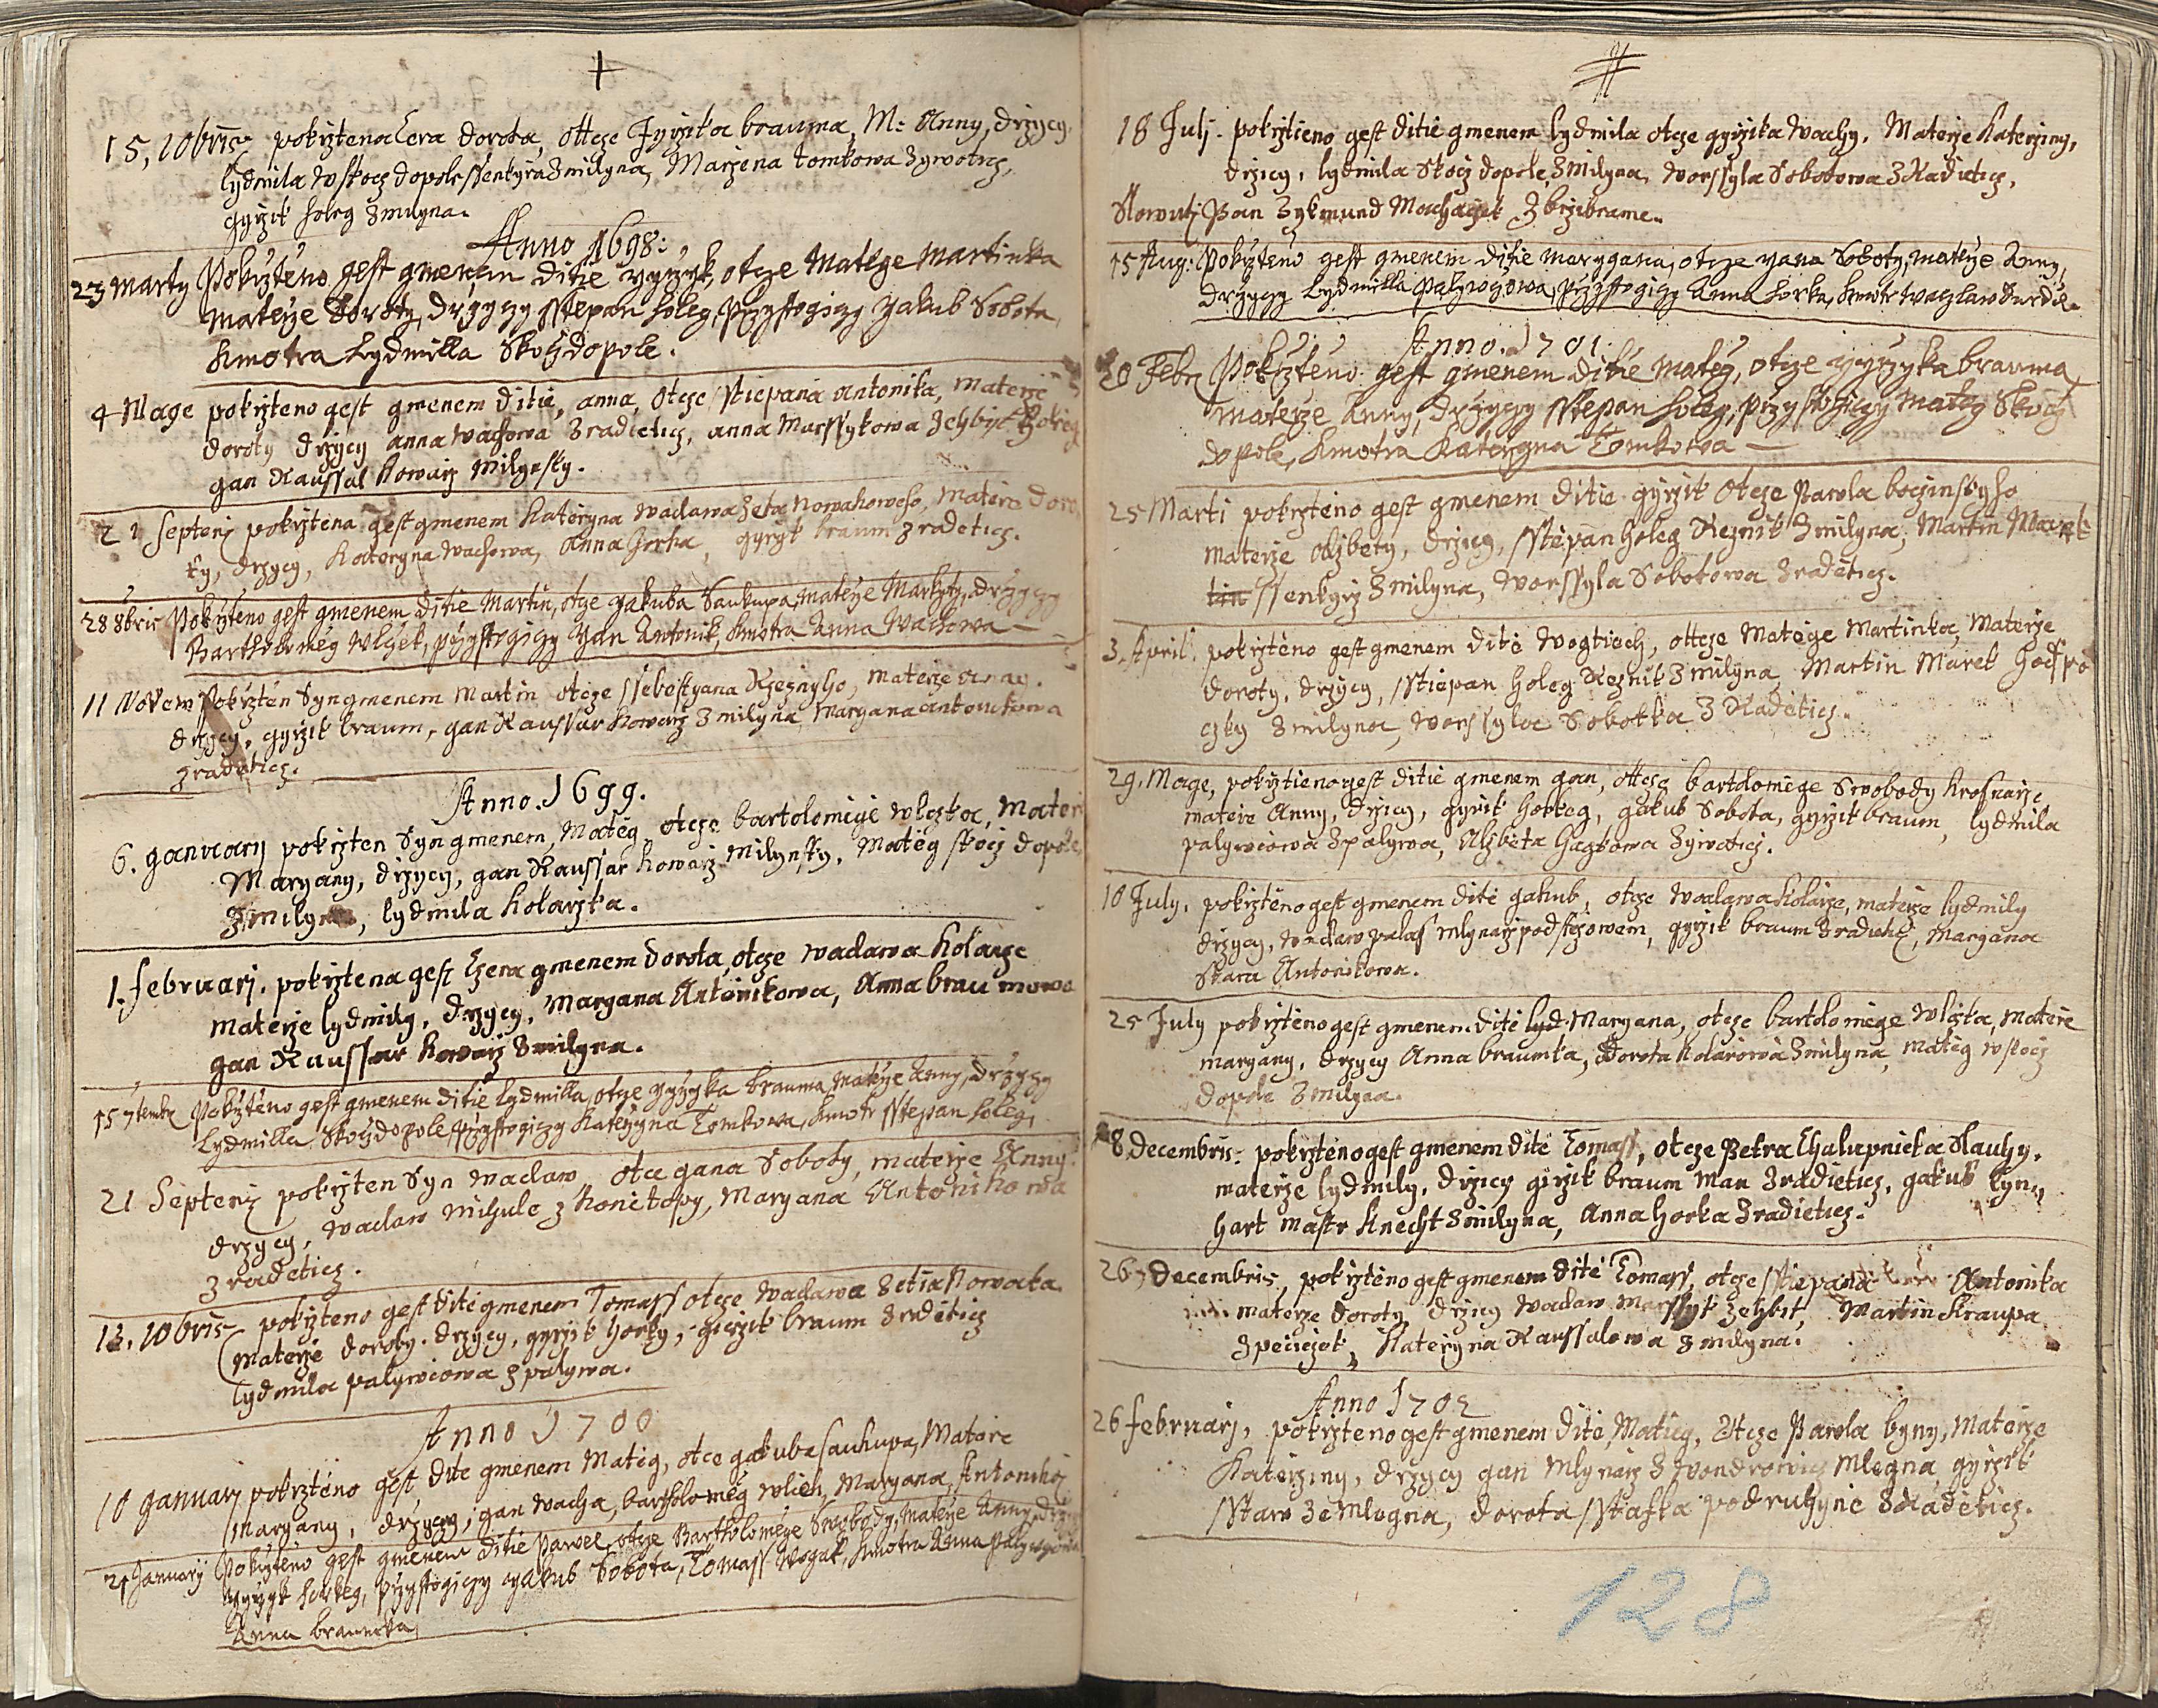 15, 10bris pokrztena Cera dorota, ottcze Jyrzika brauma, M: Anny, drzycy,
lydmila wskocz dopole ssenkyrka z milyna, Marzena tomkowa z zywoticz,
gyrzik holeg z milyna.
Anno 1698:
23 Marty Pokrzteno gest gmenem ditie gyrzyk, otcze Matege Martinka
Materze Doroty, drzyczy Sstepan holeg, przystogiczy Jakub Sobota,
kmotra Lydmilla Skoczdopole.
4 Mage pokrzteno gest gmenem ditie, anna, otcze Sstiepana Antonika, Materze
doroty drzycy anna wachowa z radieticz, anna Marssykowa
gan Raussal kowarz Milynsky.
21 Septemb pokrztena gest gmenem Kateryna waclawa zeta Nowakoweho, Matere Doro
ty, drzycy, Kateryna wachowa, Anna horka, gyrzyk braum z radeticz.
28 8bris Pokrzteno gest gmenem ditie Martin, otcze Jakuba Saukupa, Materze Markyty, drzyczy
Bartholomeg Wlczek, przystogiczy Yan Antonik, kmotra Anna Wachowa
11 Novem Pokrzten Syn gmenem Martin otcze Ssebestyana Rzeznyho, materze Anny.
drzycy, gyrzik braum, gan Raussar kowarz z milyna, Margana antonikowa
z radeticz.
Anno. 1699.
6. Januarij pokrzten Syn gmenem, Mateg, otcze bartolomege wlczka, Mater
Maryany, drzycy, gan Raussar kowarz Milynsky, Mateg skocz dopole,
z Milyna, lydmila kolarzka.
1. februarj. pokrztena gest Czera gmenem dorota, otcze waclawa Kolarze
materze lydmily, drzycy, Margana Antonikowa, Anna braumowa
gan Raussar kowarz z milyna.
15 7tembr Pokrzteno gest gmenem ditie Lydmilla, otcze gyrzyka brauma, Materze Anny, drzyczy
Lydmilla Skoczdopole, przystogiczy Katerzyna Tomkowa, kmotr Sstepan holeg,
21 Septemb pokrzten Syn waclaw otce gana Soboty, materze Anny.
drzycy, waclaw mikule z konetopy, Maryana Antonikowa
z radeticz.
12. 10bris pokrzteno gest dite gmenem Tomass otcze waclawa zetia Nowaka
Materze doroty. drzycy, gyrzik horky, girzik braum z radeticz
lydmila palywcowa z palywa.
Anno 1700
18 Januarj pokrzteno gest dite gmenem Mateg, otce gakuba saukupa, Matere
Maryany, drzycy, gan wacha, bartholomeg wlczek, Maryana, Antonikowa
21 Januarij Pokrzteno gest gmenem ditie Pawel, otcze Bartholomege Swobody, Materze Anny, drzyczy
gyrzyk horkeg, przystogiczy Yakub Sobota, Tomass Wogak, kmotra Anna Palywcowa
Anna braumka
18 Julj. pokrztieno gest ditie gmenem lydmila otcze gyrzika Wachy. Materze Katerziny,
drzicy, lydmila Skocz dopole, z Milyna, worssyla Sobotowa z Radieticz,
Slowutj Pan Zykmund Machaczek z brzibrame.
15 Aug: Pokrzteno gest gmenem ditie Marygana, otcze Yana Soboty, materze Anny,
drzyczy Lydmilla Palywczowa, przystogiczy Anna horka, kmotr waczlaw Durdil.
Anno. 1701
20 Febr Pokrzteno gest gmenem ditie Mateg, otcze gyrzyka brauma
Materze Anny, drzyczy Sstepan holeg, przystogiczy Mateg Skocz
dopole, kmotra Katerzyna Tomkowa
25 Marti pokrzteno gest gmenem ditie gyrzik otcze Pawla boczinskyho
materze Alzbety, drzicy, Sstiepan holeg Reznik z milyna, Martin Marek
tin ssenkyrz z milyna, Worssyla Sobotowa z radeticz.
3. April. pokrzteno gest gmenem dite Wogtiech, ottcze Matege Martinka, Materze
doroty, drzycy, Sstiepan holeg Reznik z milyna, Martin Marek hospo
czky z milyna, worssyla Sobotka z Radeticz.
29. Mage, pokrztieno gest ditie gmenem gan, ottcze bartolomege Swobody krosnarze
matere Anny, drzicy, gyrzik horkeg, gakub Sobota, gyrzik braum, lydmila
palywcowa z palywa, Alzbeta Hagkowa z zywoticz.
10 July, pokrzteno gest gmenem dite gakub, otcze waclawa kolarze, materze lydmily
drzycy, waclaw palas mlynarz pod stezowem, gyrzik braum z radieticz, Margana
Stara Antonikowa.
25 July pokrzteno gest gmenem dite lyd Maryana, otcze bartolomege wlczka, matere
maryany, drzycy Anna braumka, dorota kolarowa z milyna, mateg wskocz
dopole z milyna.
8 Decembris: pokrzteno gest gmenem dite Tomass, otcze Petra Chalupnicka Slauhy.
materze lydmily, drzicy girzik braum Man z radieticz, gakub lyn
hart mastr knecht z milyna, Anna horka z radieticz.
26, Decembris, pokrzteno gest gmenem dite Tomass, otcze Sstiepana Antonika
materze doroty, drzicy waclaw Marssyk zehbit, Martin kraupa
z peciczek, Kateryna Raussalowa z milyna.
Anno 1702
26 februarj, pokrzteno gest gmenem dite, Matieg, Otcze Pawla byny, Materze
Katerziny, drzycy gan Mlynarz z Wondrowicz Mlegna gyrzik
Sstaw ze Mlegna, dorota Sstasta podruhyne z Radeticz.
128